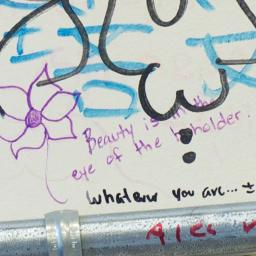 Beauty is in the
eye of the beholder.
Whatever you are... ±
Alec